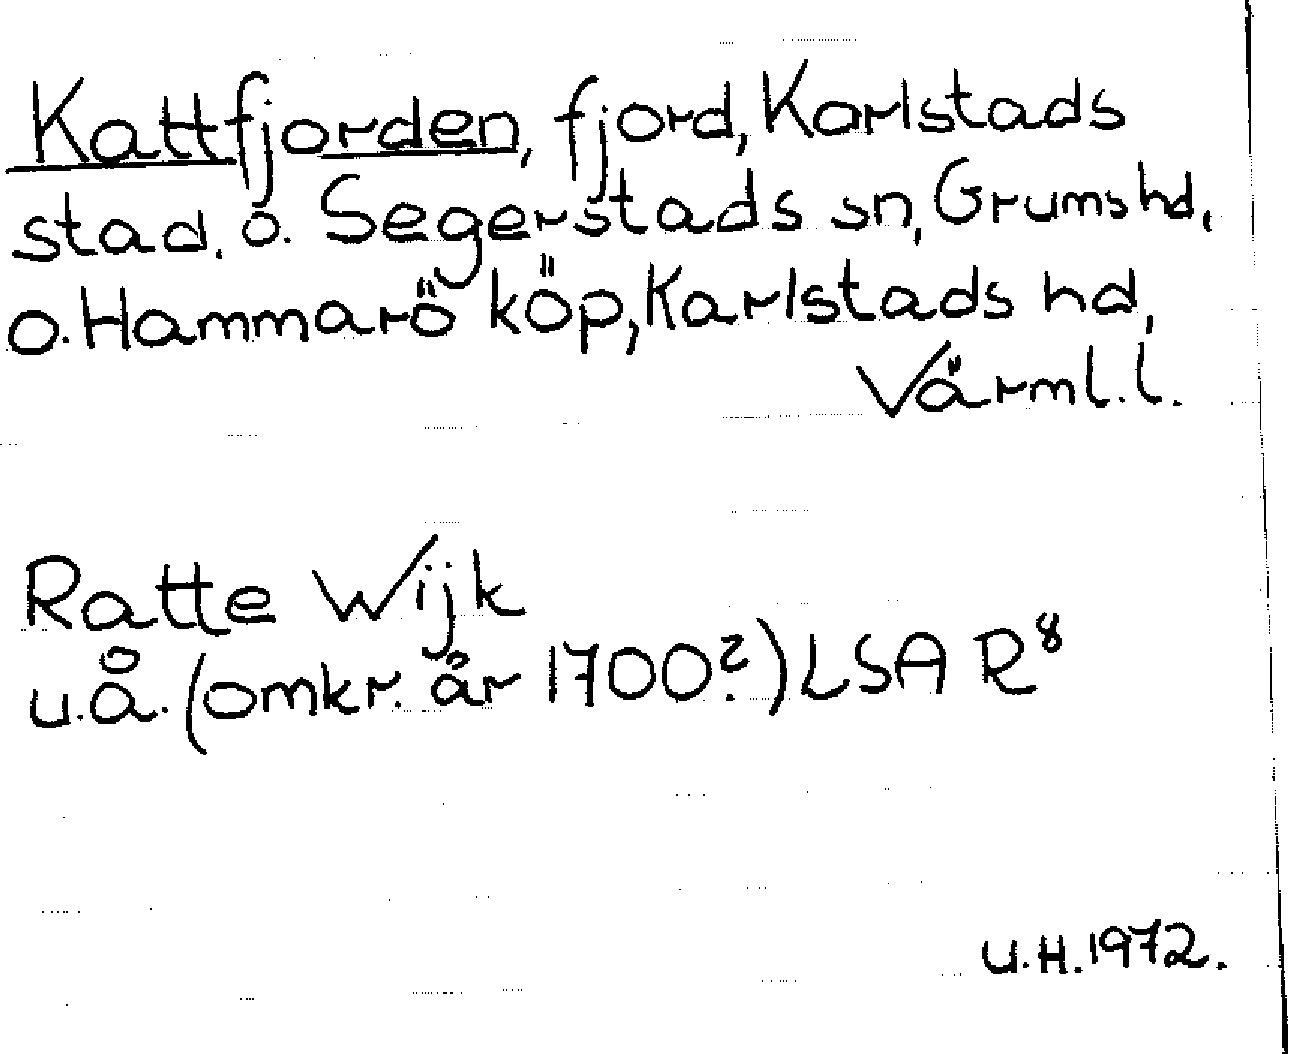 Kattfjorden, fjord, Karlstads
stad, o. Segerstads sn, Grums hd,
o. Hammarö köp, Karlstads hd,
Värml. l.
Ratte Wijk
u.å. (omkr. år 1700?) LSA R⁸
U.H. 1972.